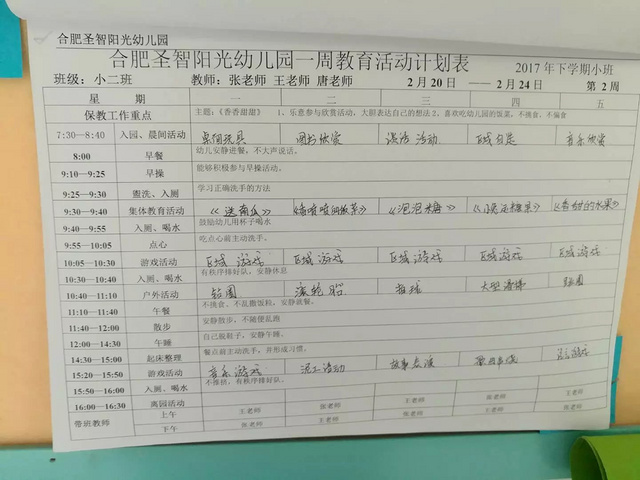 合肥圣智阳光幼儿园
合肥圣智阳光幼儿园一周教育活动计划表 2017年下学期小班
班级：小二班 教师：张老师 王老师 唐老师 2月20日 ——2月24日 第2周
星 期 一 二 三 四 五
保教工作重点 主题：《香香甜甜》 1、乐意参与欣赏活动，大胆表达自己的想法 2、喜欢吃幼儿园的饭菜，不挑食、不偏食
7:30—8:40 入园、晨间活动 桌面玩具 图书欣赏 活动 区域 音乐欣赏
8:00 早餐 幼儿安静进餐，不大声说话。
9:10—9:25 早操 能够积极参与早操活动。
9:25—9:30 盥洗、入厕 学习正确洗手的方法
9:30—9:40 集体教育活动 《送南瓜》 《香喷喷的》 《泡泡糖》 《糖果》 《香甜的水果》
9:40—9:55 入厕、喝水 鼓励幼儿用杯子喝水
9:55—10:05 点心 吃点心前主动洗手。
10:05—10:30 游戏活动 区域游戏 区域游戏 区域游戏 区域游戏 区域游戏
10:30—10:40 入厕、喝水 有秩序排好队，安静休息
10:40—11:10 户外活动 钻圈 滚轮胎 大型 钻圈
11:10—11:40 午餐 不挑食、不乱撒饭粒，安静就餐。
11:40—12:00 散步 安静散步，不随便乱跑
12:00—14:30 午睡 自己脱鞋子，安静午睡。
14:30—15:00 起床整理 餐点前主动洗手，并形成习惯。
15:20—15:50 游戏活动 音乐游戏 活动 故事表演 歌曲
15:50—16:00 入厕、喝水 不推挤，有秩序排好队。
16:00—16:30 离园活动
带班教师 上午 王老师 张老师 王老师 张老师 王老师
下午 张老师 王老师 张老师 王老师 张老师